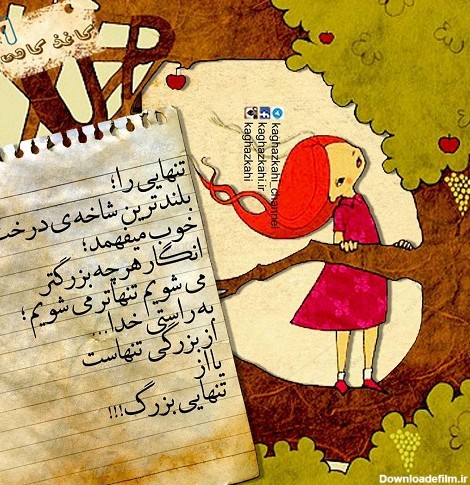 کاغذ کاهی
kaghazkahi_channel
kaghazkahi.ir
kaghazkahi
تنهایی را؛
بلندترین شاخه ی درخت
خوب میفهمد؛
انگار هر چه بزرگتر
می شویم تنهاتر می شویم؛
به راستی خدا...
از بزرگی تنهاست
یا از
تنهایی بزرگ!!!
Downloadefilm.ir